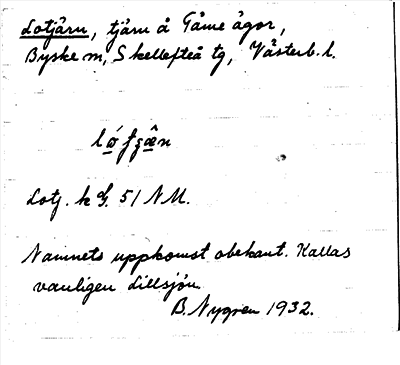 Lotjärn, tjärn å Tåme ägor,
Byske sn, Skellefteå tg, Västerb. l.
Lotj. k bl. 51 NM.
Namnets uppkomst obekant. Kallas
vanligen Lillsjön.
B. Nygren 1932.